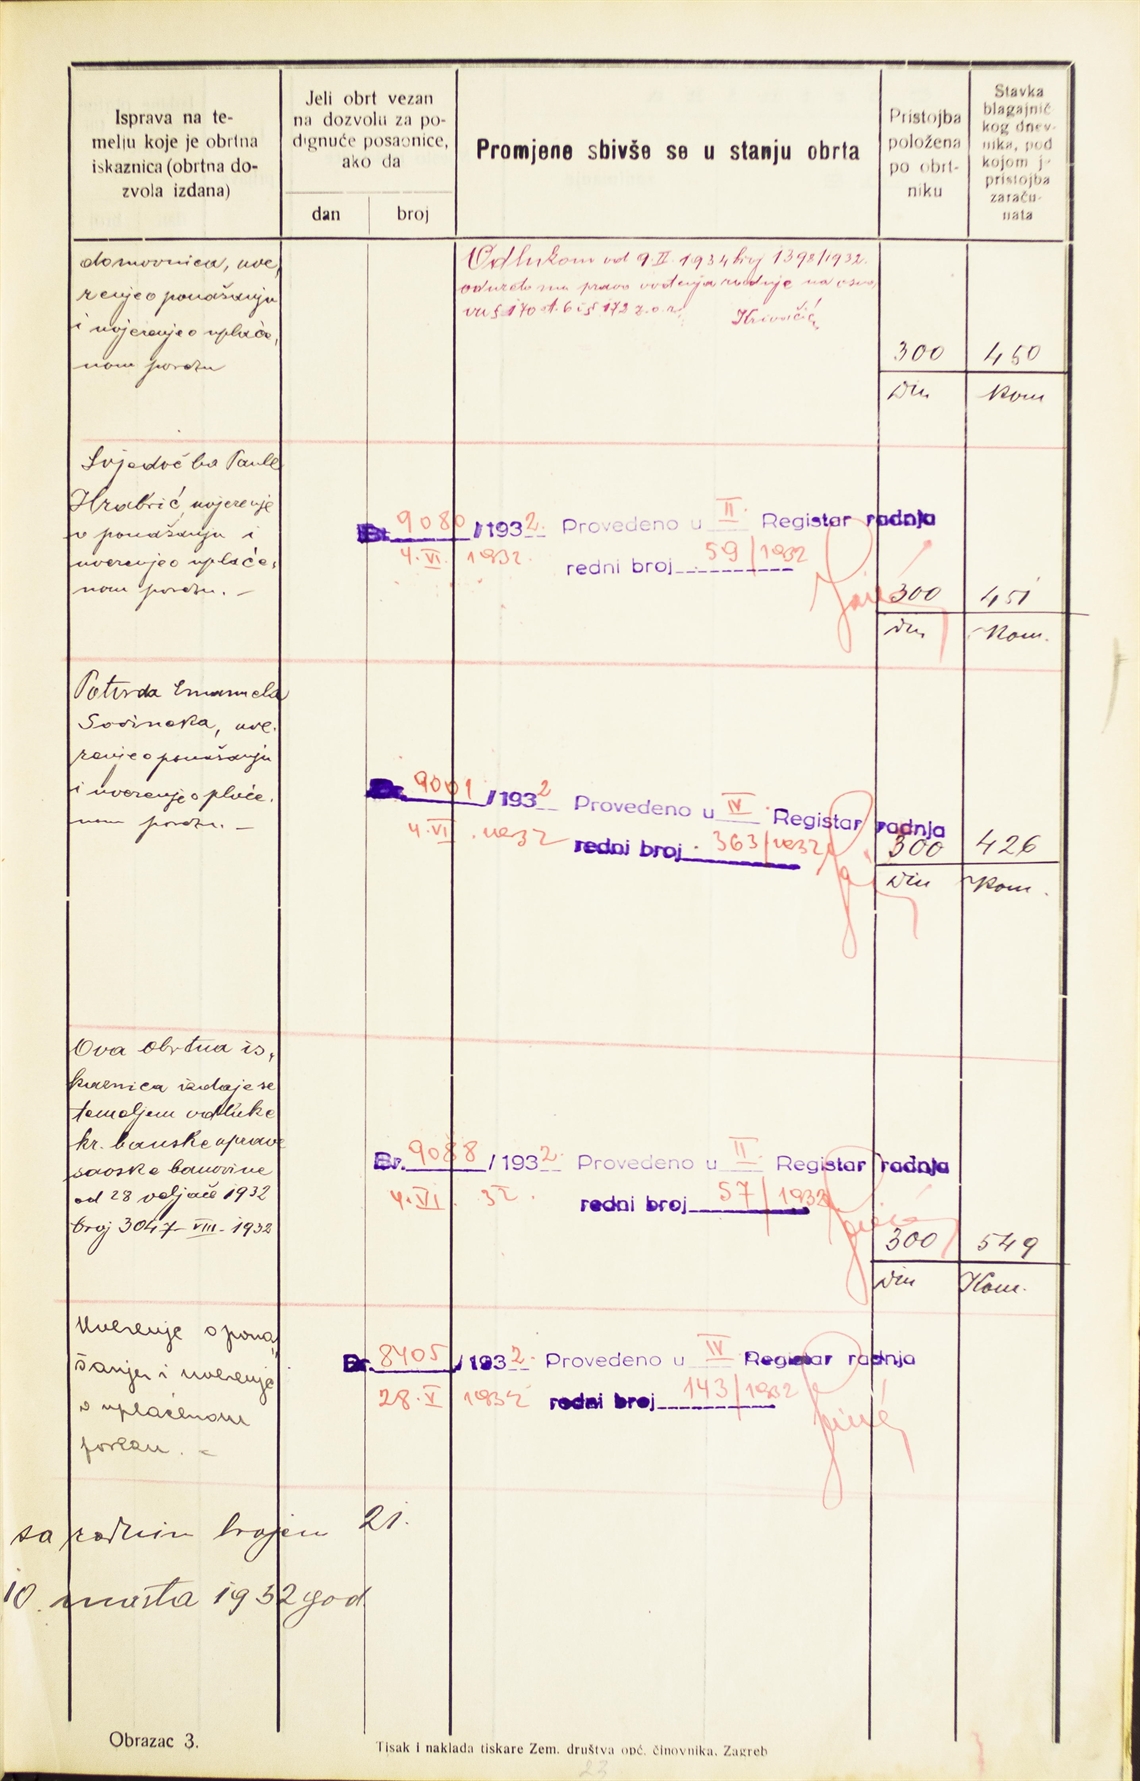 Isprava na te-
melju koje je obrtna
iskaznica (obrtna do-
zvola izdana)
Jeli obrt vezan
na dozvolu za po-
dignuće posaonice,
ako da
dan
broj
Promjene sbivše se u stanju obrta
Pristojba
položena
po obrt-
niku
Stavka
blagajnič
kog dnev-
nika, pod
kojom je
pristojba
zaraču-
nata
domovnica, uve,
renje o ponašanju
i uvjerenje o uplaće,
nom porezu
Odlukom od 9.II.1934 broj 1398/1932.
oduzeto mu pravo vođenja radnje na osno,
vu § 170 t. 6 i § 172 z.o.r.
300
450
Din
Kom
Svjedočba Paule
Hrabrić, uvjerenje
o ponašanju i
uverenje o uplaće,
nom porezu. —
Br. 9080/1932. Provedeno u II. Registar radnja
4.VI. 1932. redni broj 59/1932
300
451
Din
Kom.
Potvrda Emanuela
uve.
renje o ponašanju
i uverenje o plaće.
nom porezu. —
Br. 9001/1932 Provedeno u IV. Registar radnja
4.VI. 1932 redni broj 363/1932
300
426
Din
Kom.
Ova obrtna is,
kaznica izdaje se
temeljem odluke
kr. banske uprave
savske banovine
od 28 veljače 1932
broj 3047-VIII-1932
Br. 9088/1932. Provedeno u II. Registar radnja
4.VI. 32. redni broj 57/1932
300
549
Din
Kom.
Uverenje o pona,
šanju i uverenje
o uplaćenom
porezu. —
Br. 8405/1932. Provedeno u IV Registar radnja
28.V 1932 redni broj 143/1932
sa rednim brojem 21.
10. marta 1932 god
Obrazac 3.
Tisak i naklada tiskare Zem. društva opć. činovnika. Zagreb
23